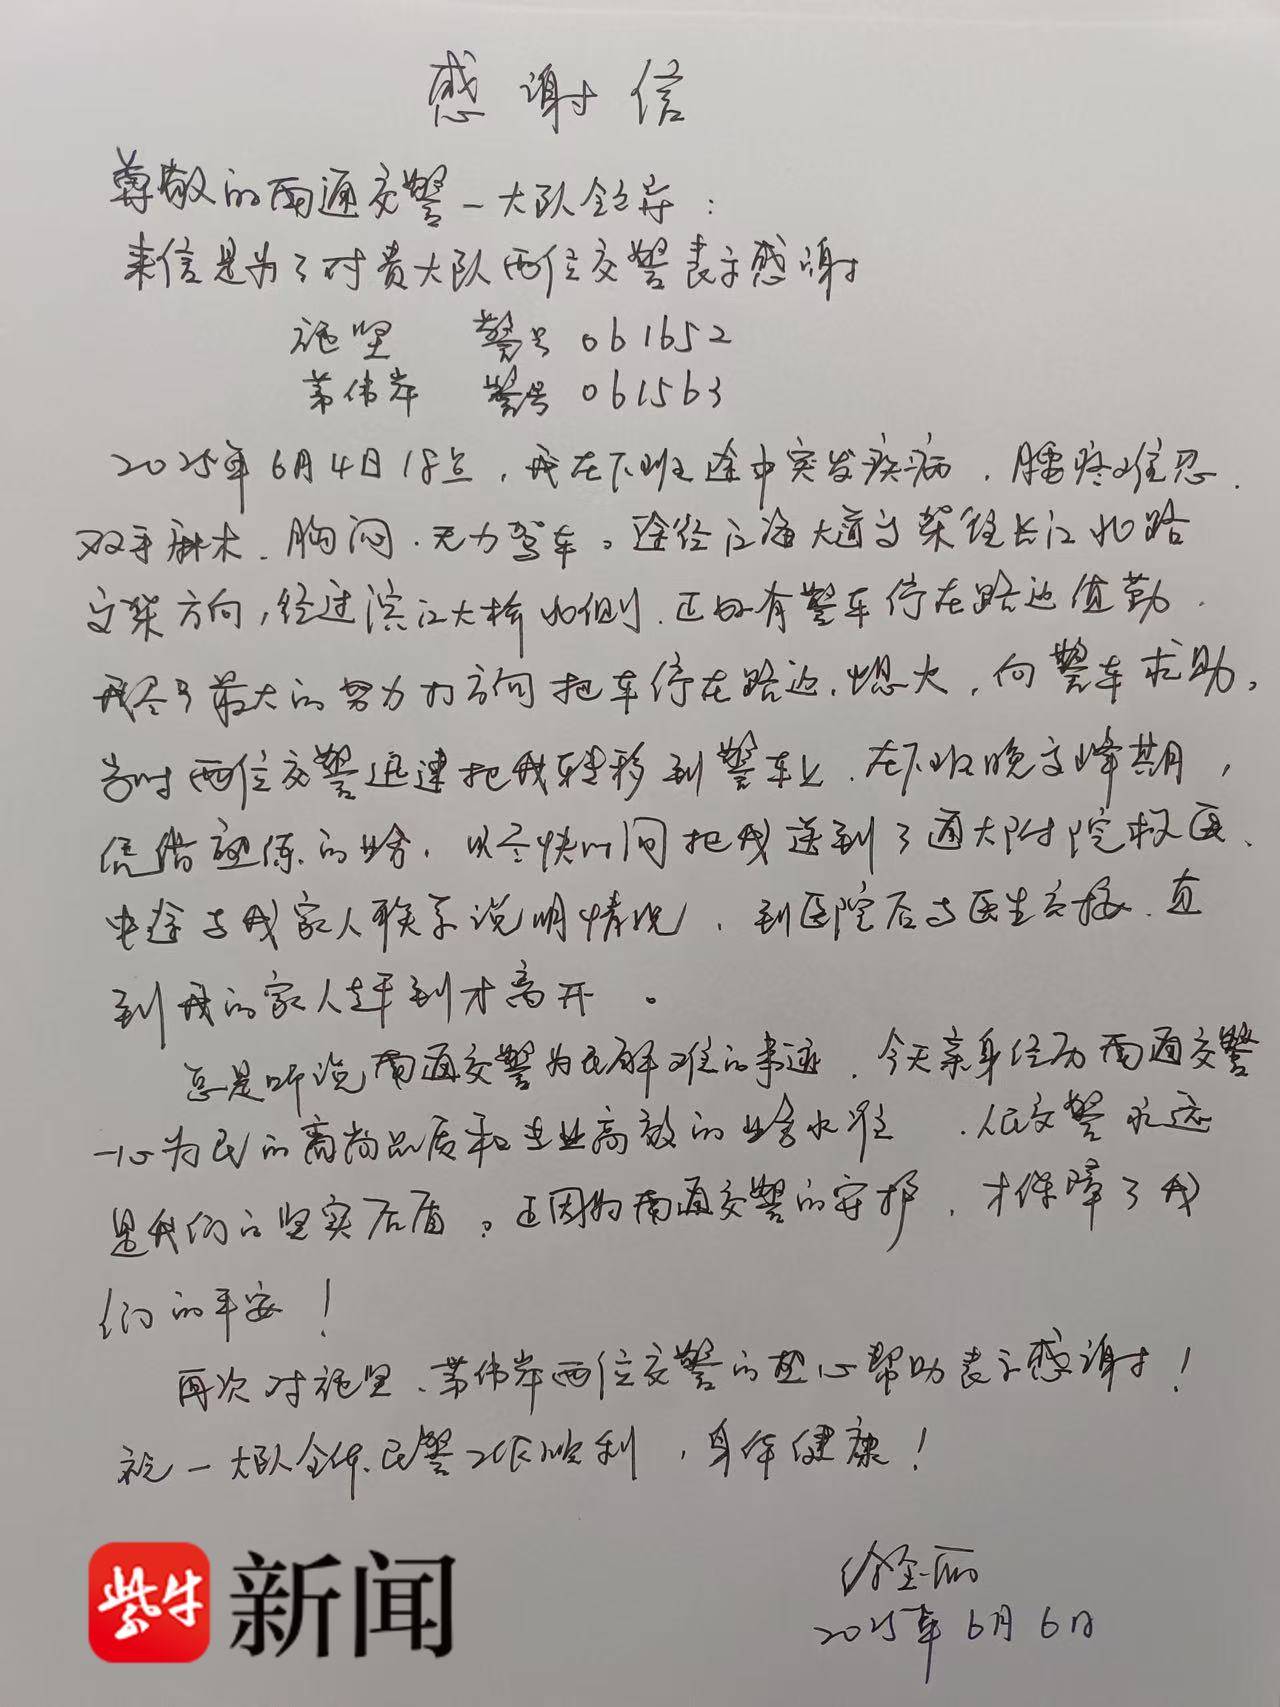 感谢信
尊敬的南通交警一大队领导：
来信是为了对贵大队两位交警表示感谢
施坚 警号 061652
茅伟岸 警号 061563
2025年6月4日18点，我在下班途中突发疾病，腰疼难忍、
双手麻木、胸闷、无力驾车。途径江海大道高架往长江北路
高架方向，经过滨江大桥北侧，正好有警车停在路边值勤，
我尽了最大的努力打方向把车停在路边，熄火，向警车求助。
当时两位交警迅速把我转移到警车上，在下班晚高峰期，
凭借熟练的业务，以尽快时间把我送到了通大附院救医、
中途与我家人联系说明情况，到医院后与医生交接，直
到我的家人赶到才离开。
总是听说南通交警为民解难的事迹，今天亲身经历南通交警
一心为民的高尚品质和专业高效的业务水准，人民交警永远
是我们的坚实后盾。正因为南通交警的守护，才保障了我
们的平安！
再次对施坚、茅伟岸两位交警的热心帮助表示感谢！
祝一大队全体民警工作顺利，身体健康！
徐金丽
2025年6月6日
紫牛新闻